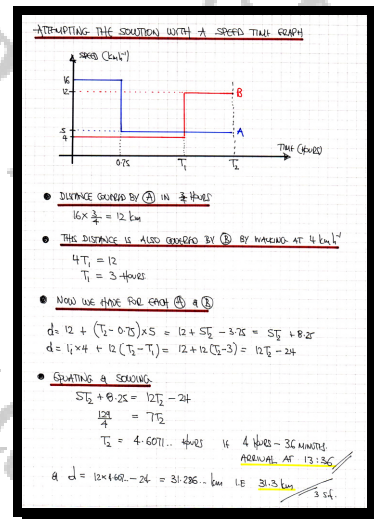 ATTEMPTING THE SOLUTION WITH A SPEED TIME GRAPH
SPEED (kmh⁻¹)
16
12
B
5
A
4
TIME (HOURS)
0.75
T₁
T₂
● DISTANCE COVERED BY Ⓐ IN 3/4 HOURS
16 × 3/4 = 12 km
● THIS DISTANCE IS ALSO COVERED BY Ⓑ BY WALKING AT 4 kmh⁻¹
4T₁ = 12
T₁ = 3 HOURS
● NOW WE HAVE FOR EACH Ⓐ & Ⓑ
d = 12 + (T₂ - 0.75) × 5 = 12 + 5T₂ - 3.75 = 5T₂ + 8.25
d = T₁ × 4 + 12(T₂ - T₁) = 12 + 12(T₂ - 3) = 12T₂ - 24
● EQUATING & SOLVING
5T₂ + 8.25 = 12T₂ - 24
129/4 = 7T₂
T₂ = 4.6071.. HOURS IE 4 HOURS - 36 MINUTES.
ARRIVAL AT 13:36
& d = 12 × 4.607.. - 24 = 31.286... km I.E 31.3 km
3 s.f.